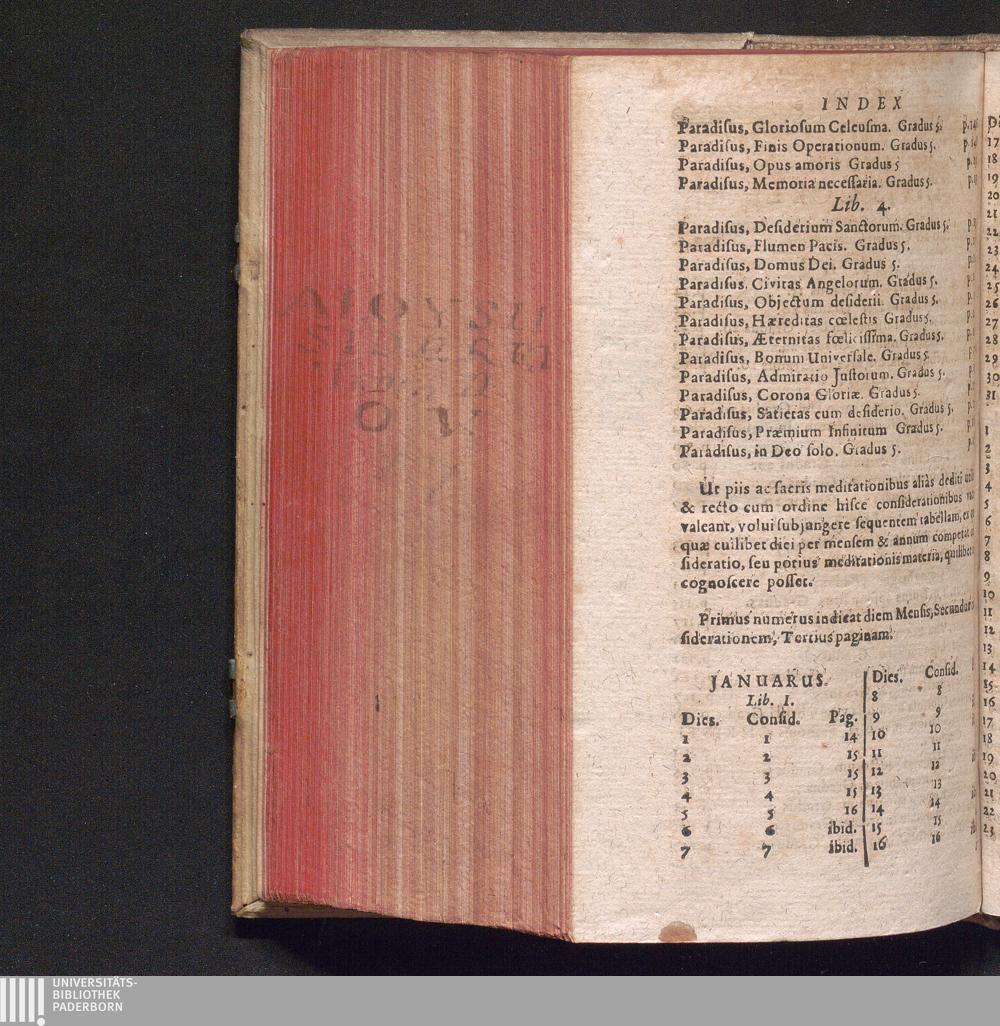 INDEX
Paradiſus, Glorioſum Celeuſma. Gradus 5.
Paradiſus, Finis Operationum. Gradus 5.
Paradiſus, Opus amoris Gradus 5
Paradiſus, Memoria neceſſaria. Gradus 5.
Lib. 4.
Paradiſus, Deſiderium Sanctorum. Gradus 5.
Paradiſus, Flumen Pacis. Gradus 5.
Paradiſus, Domus Dei. Gradus 5.
Paradiſus. Civitas Angelorum. Gradus 5.
Paradiſus, Objectum deſiderii. Gradus 5.
Paradiſus, Hæreditas cœleſtis Gradus 5.
Paradiſus, Æternitas fœliciſſima. Gradus 5.
Paradiſus, Bonum Univerſale. Gradus 5.
Paradiſus, Admiratio Juſtorum. Gradus 5.
Paradiſus, Corona Gloriæ. Gradus 5.
Paradiſus, Satietas cum deſiderio. Gradus 5.
Paradiſus, Præmium Infinitum Gradus 5.
Paradiſus, in Deo ſolo. Gradus 5.
Ut piis ac ſacris meditationibus aliàs dediti
& recto cum ordine hiſce conſiderationibus
valeant, volui ſubjungere ſequentem tabellam,
quæ cuilibet diei per menſem & annum competat
ſideratio, ſeu potius meditationis materia, quilibet
cognoſcere poſſet.
Primus numerus indicat diem Menſis, Secundus
ſiderationem, Tertius paginam.
JANUARUS.
Lib. I.
Dies. Conſid. Pag.
1 1 14
2 2 15
3 3 15
4 4 15
5 5 16
6 6 ibid.
7 7 ibid.
Dies. Conſid.
8 8
9 9
10 10
11 11
12 12
13 13
14 14
15 15
16 16
17
18
19
20
21
22
23
24
25
26
27
28
29
30
31
1
2
3
4
5
6
7
8
9
10
11
12
13
14
15
16
17
18
19
20
21
22
23
UNIVERSITÄTS-
BIBLIOTHEK
PADERBORN